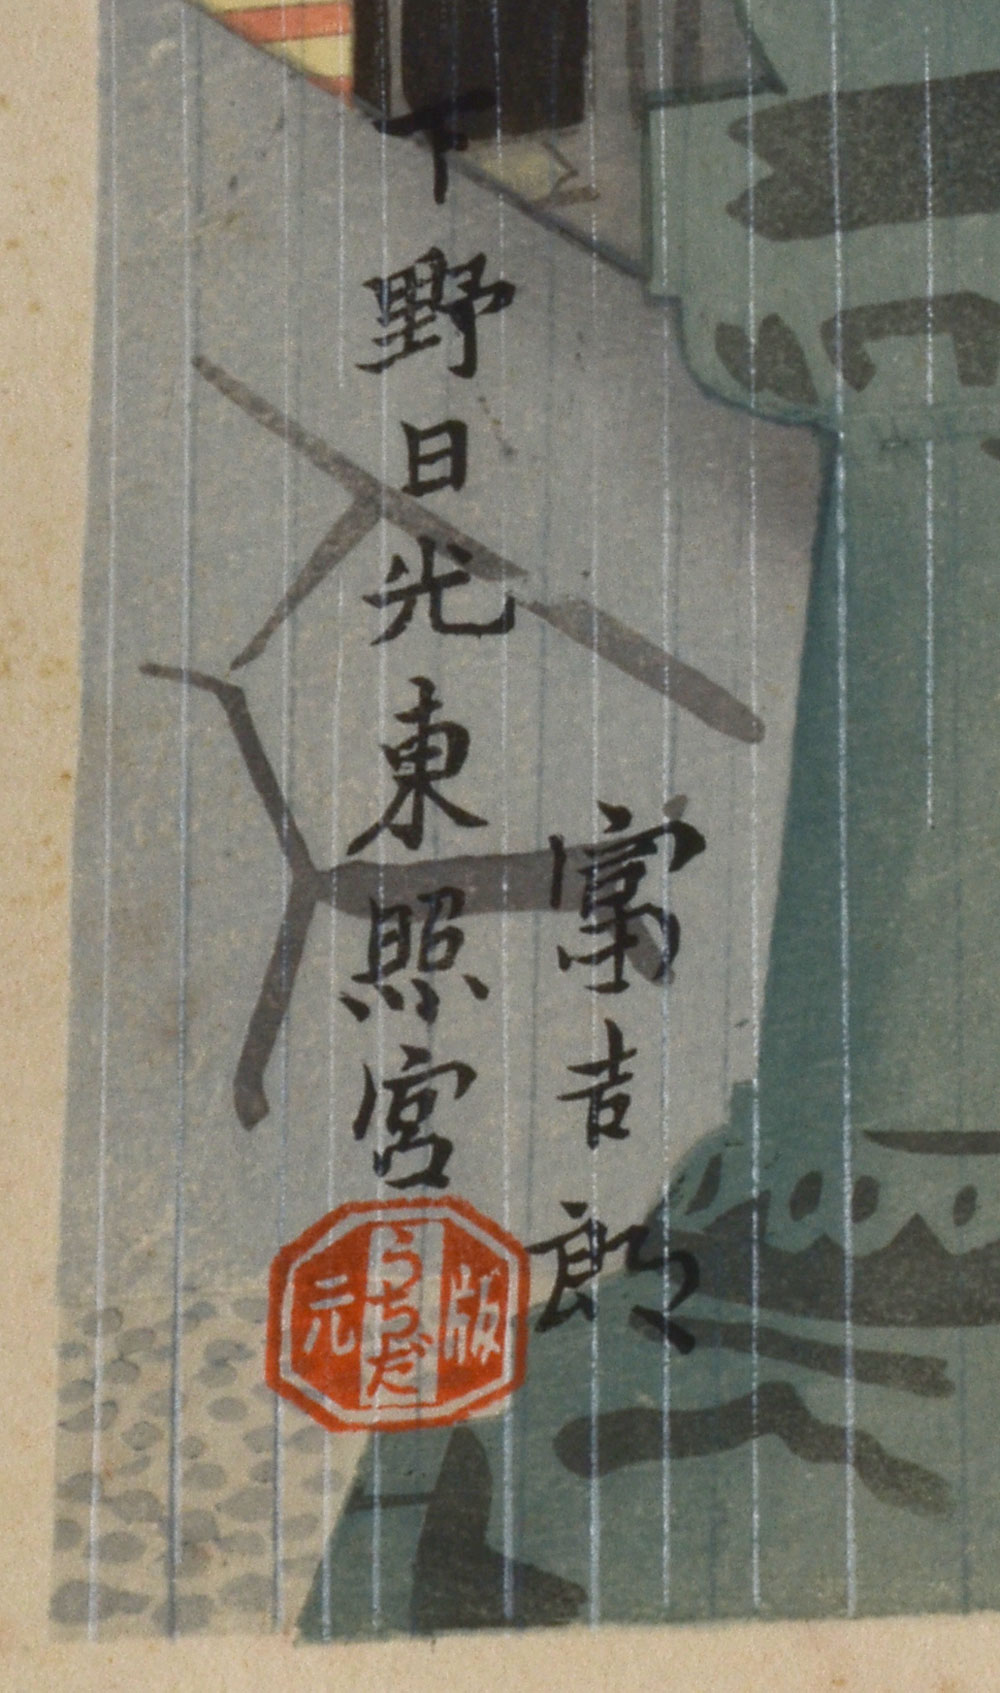 富吉郎
下野日光東照宮
版
うちだ
元